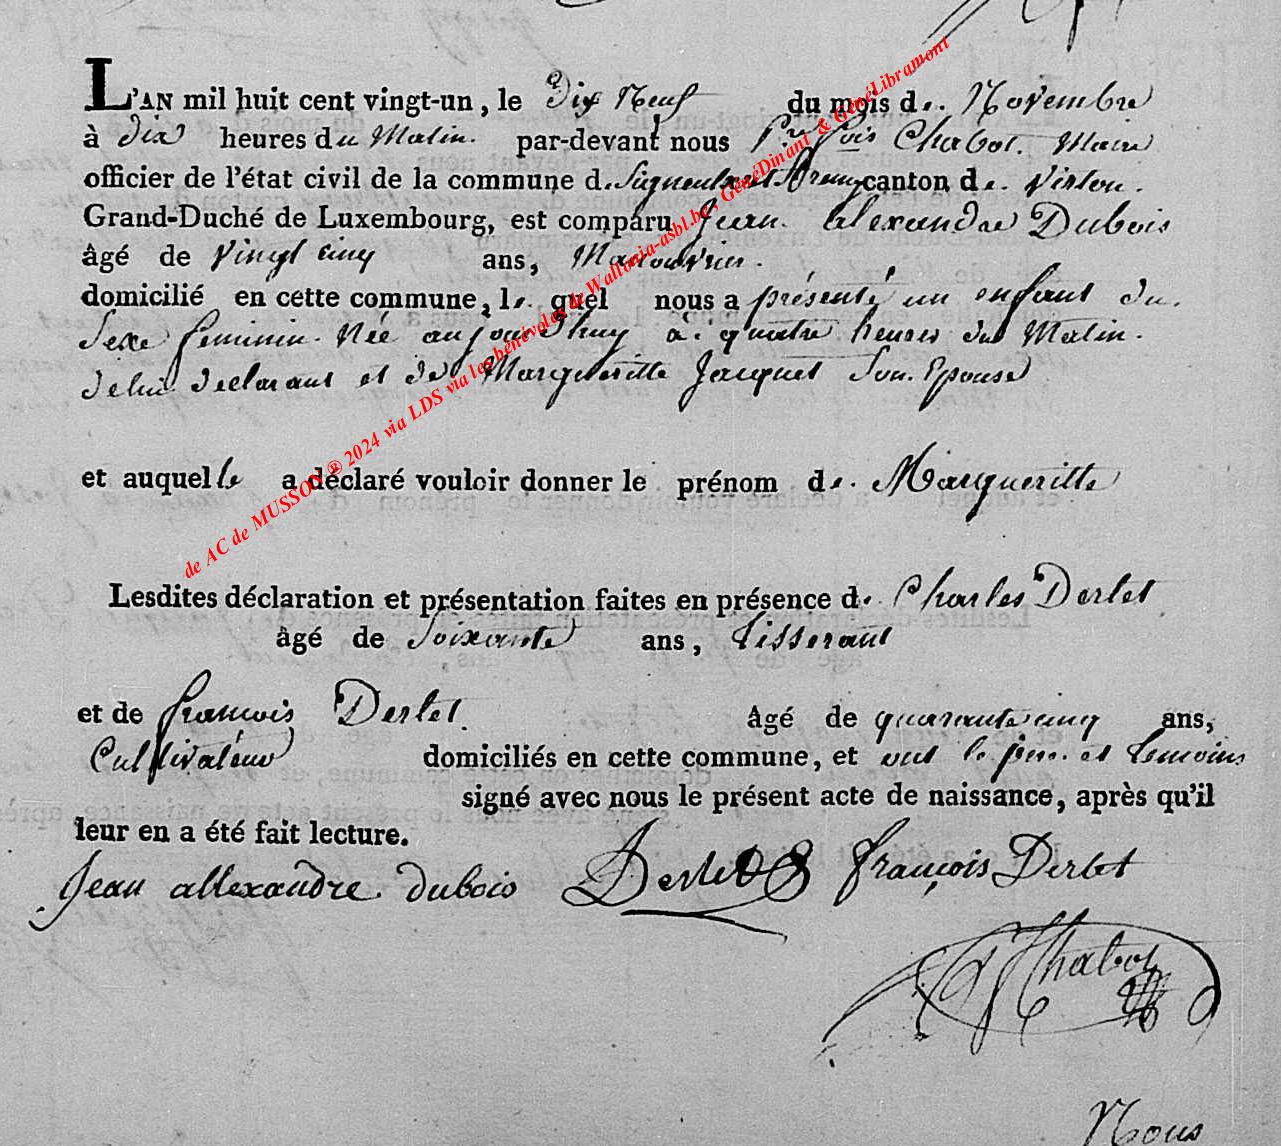 L'AN mil huit cent vingt-un, le Dix Neuf du mois de. Novembre
à dix heures du Matin. par-devant nous Pre. fois Chabot. Maire
officier de l'état civil de la commune de Signeulx canton de. Virton.
Grand-Duché de Luxembourg, est comparu Jean. alexandre Dubois
âgé de vingt cinq ans, Manouvrier.
domicilié en cette commune, le. quel nous a présenté un enfant du.
Sexe feminin. Née aujourdhuy a. quatre heures du Matin.
delui declarant et de Margueritte Jacquet Son. Epouse
et auquelle a déclaré vouloir donner le prénom de. Margueritte
Lesdites déclaration et présentation faites en présence de Charles Derlet
âgé de Soixante ans, tisserant
et de francois Derlet. âgé de quarante cinq ans,
Cultivateur domiciliés en cette commune, et ont le pere. et temoins
signé avec nous le présent acte de naissance, après qu'il
leur en a été fait lecture.
Jean allexandre. dubois Derlet françois Derlet
Chabot
Nous
de AC de MUSSON ® 2024 via LDS via les bénévoles de Wallonia-asbl.be, GénéDinant & GénéLibramont